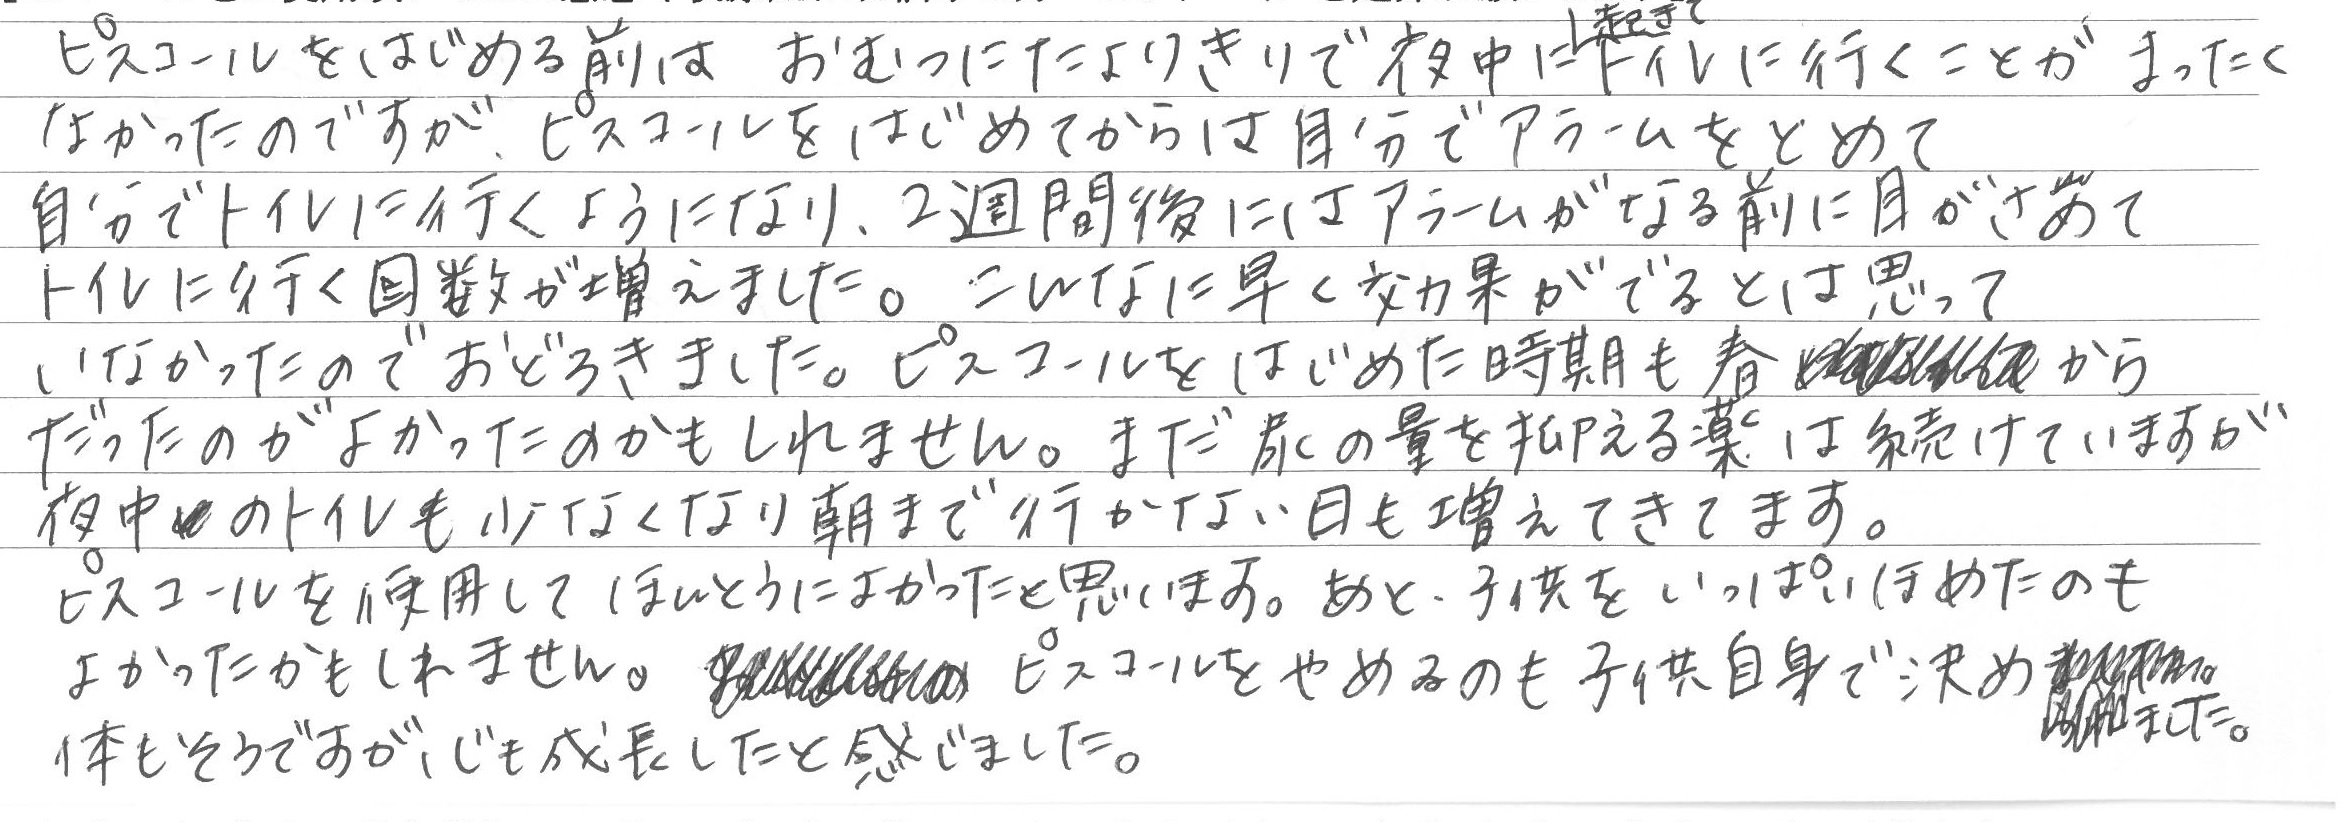 ピスコールをはじめる前は おむつにたよりきりで夜中に起きてトイレに行くことが まったく
なかったのですが、ピスコールをはじめてからは自分でアラームをとめて
自分でトイレに行くようになり、2週間後にはアラームがなる前に目がさめて
トイレに行く回数が増えました。 こんなに早く効果がでるとは思って
いなかったのでおどろきました。ピスコールをはじめた時期も春から
だったのがよかったのかもしれません。まだ尿の量を抑える薬は続けていますが
夜中のトイレも少なくなり朝まで行かない日も増えてきてます。
ピスコールを使用してほんとうによかったと思います。あと、子供をいっぱいほめたのも
よかったかもしれません。 ピスコールをやめるのも子供自身で決め
ました。
体もそうですが、心も成長したと感じました。